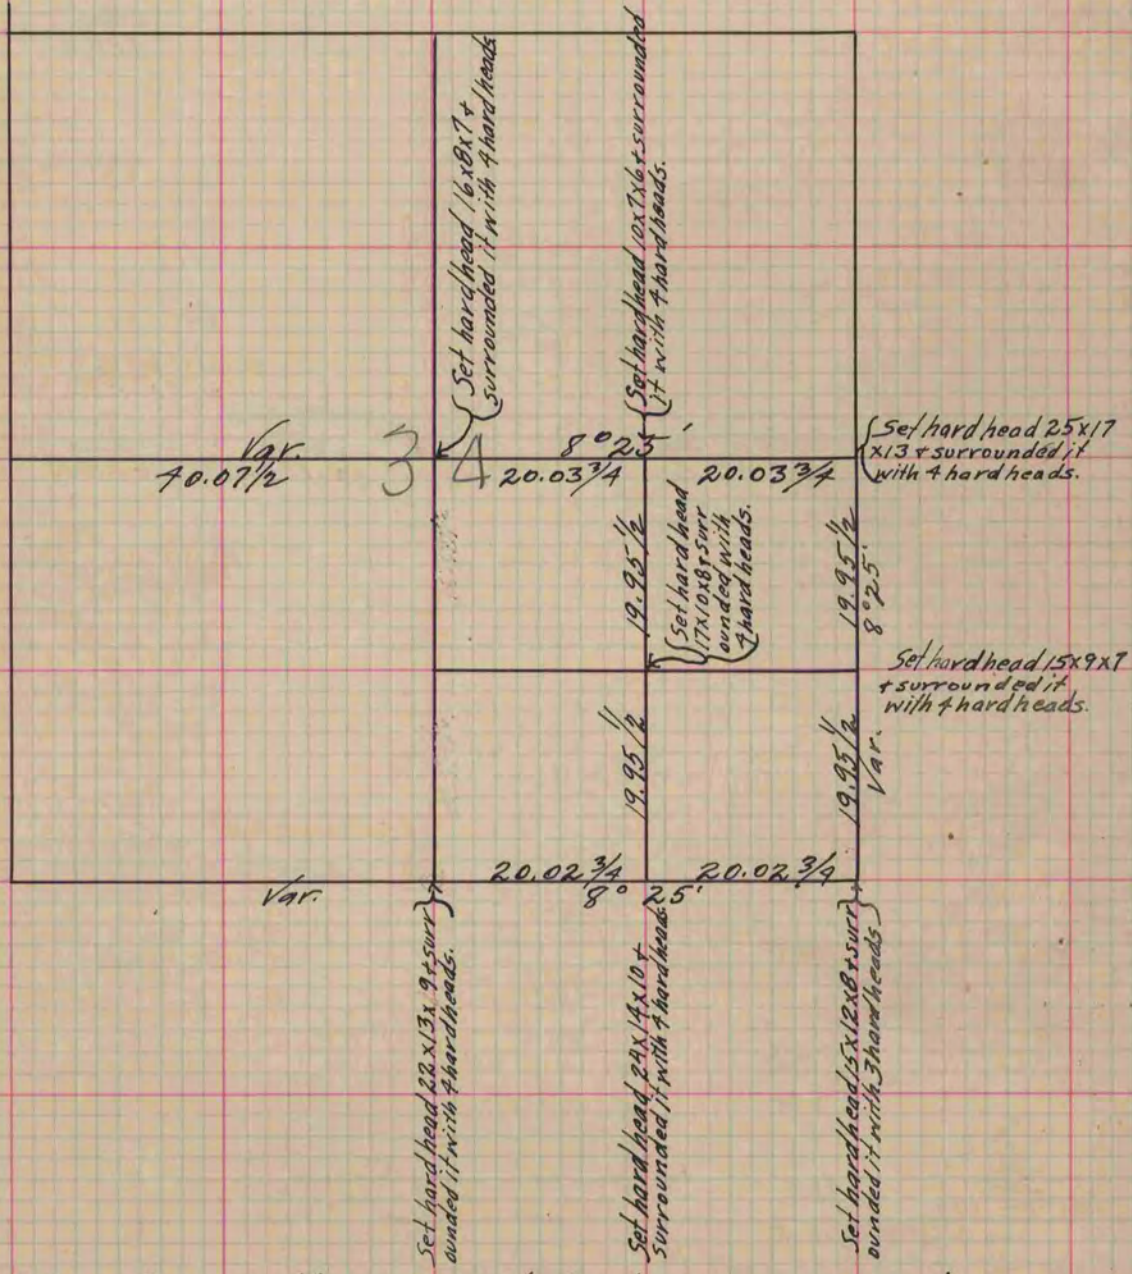 Set hard head 16x8x7 +
surrounded it with 4 hard heads
Set hard head 10x7x6 + surrounded
it with 4 hard heads.
Var.
40.07 1/2
34
8° 25'
20.03 3/4
20.03 3/4
Set hard head 25x17
x13 + surrounded it
with 4 hard heads.
19.95 1/2
Set hard head
17x10x8 + surr
ounded with
4 hard heads.
19.95 1/2
8° 25'
Set hard head 15x9x7
+ surrounded it
with 4 hard heads.
19.95 1/2
19.95 1/2
Var.
20.02 3/4
20.02 3/4
Var.
8° 25'
Set hard head 22x13x9 + surr
ounded it with 4 hard heads.
Set hard head 24x14x10 +
surrounded it with 4 hard heads
Set hard head 15x12x8 + surr
ounded it with 3 hard heads